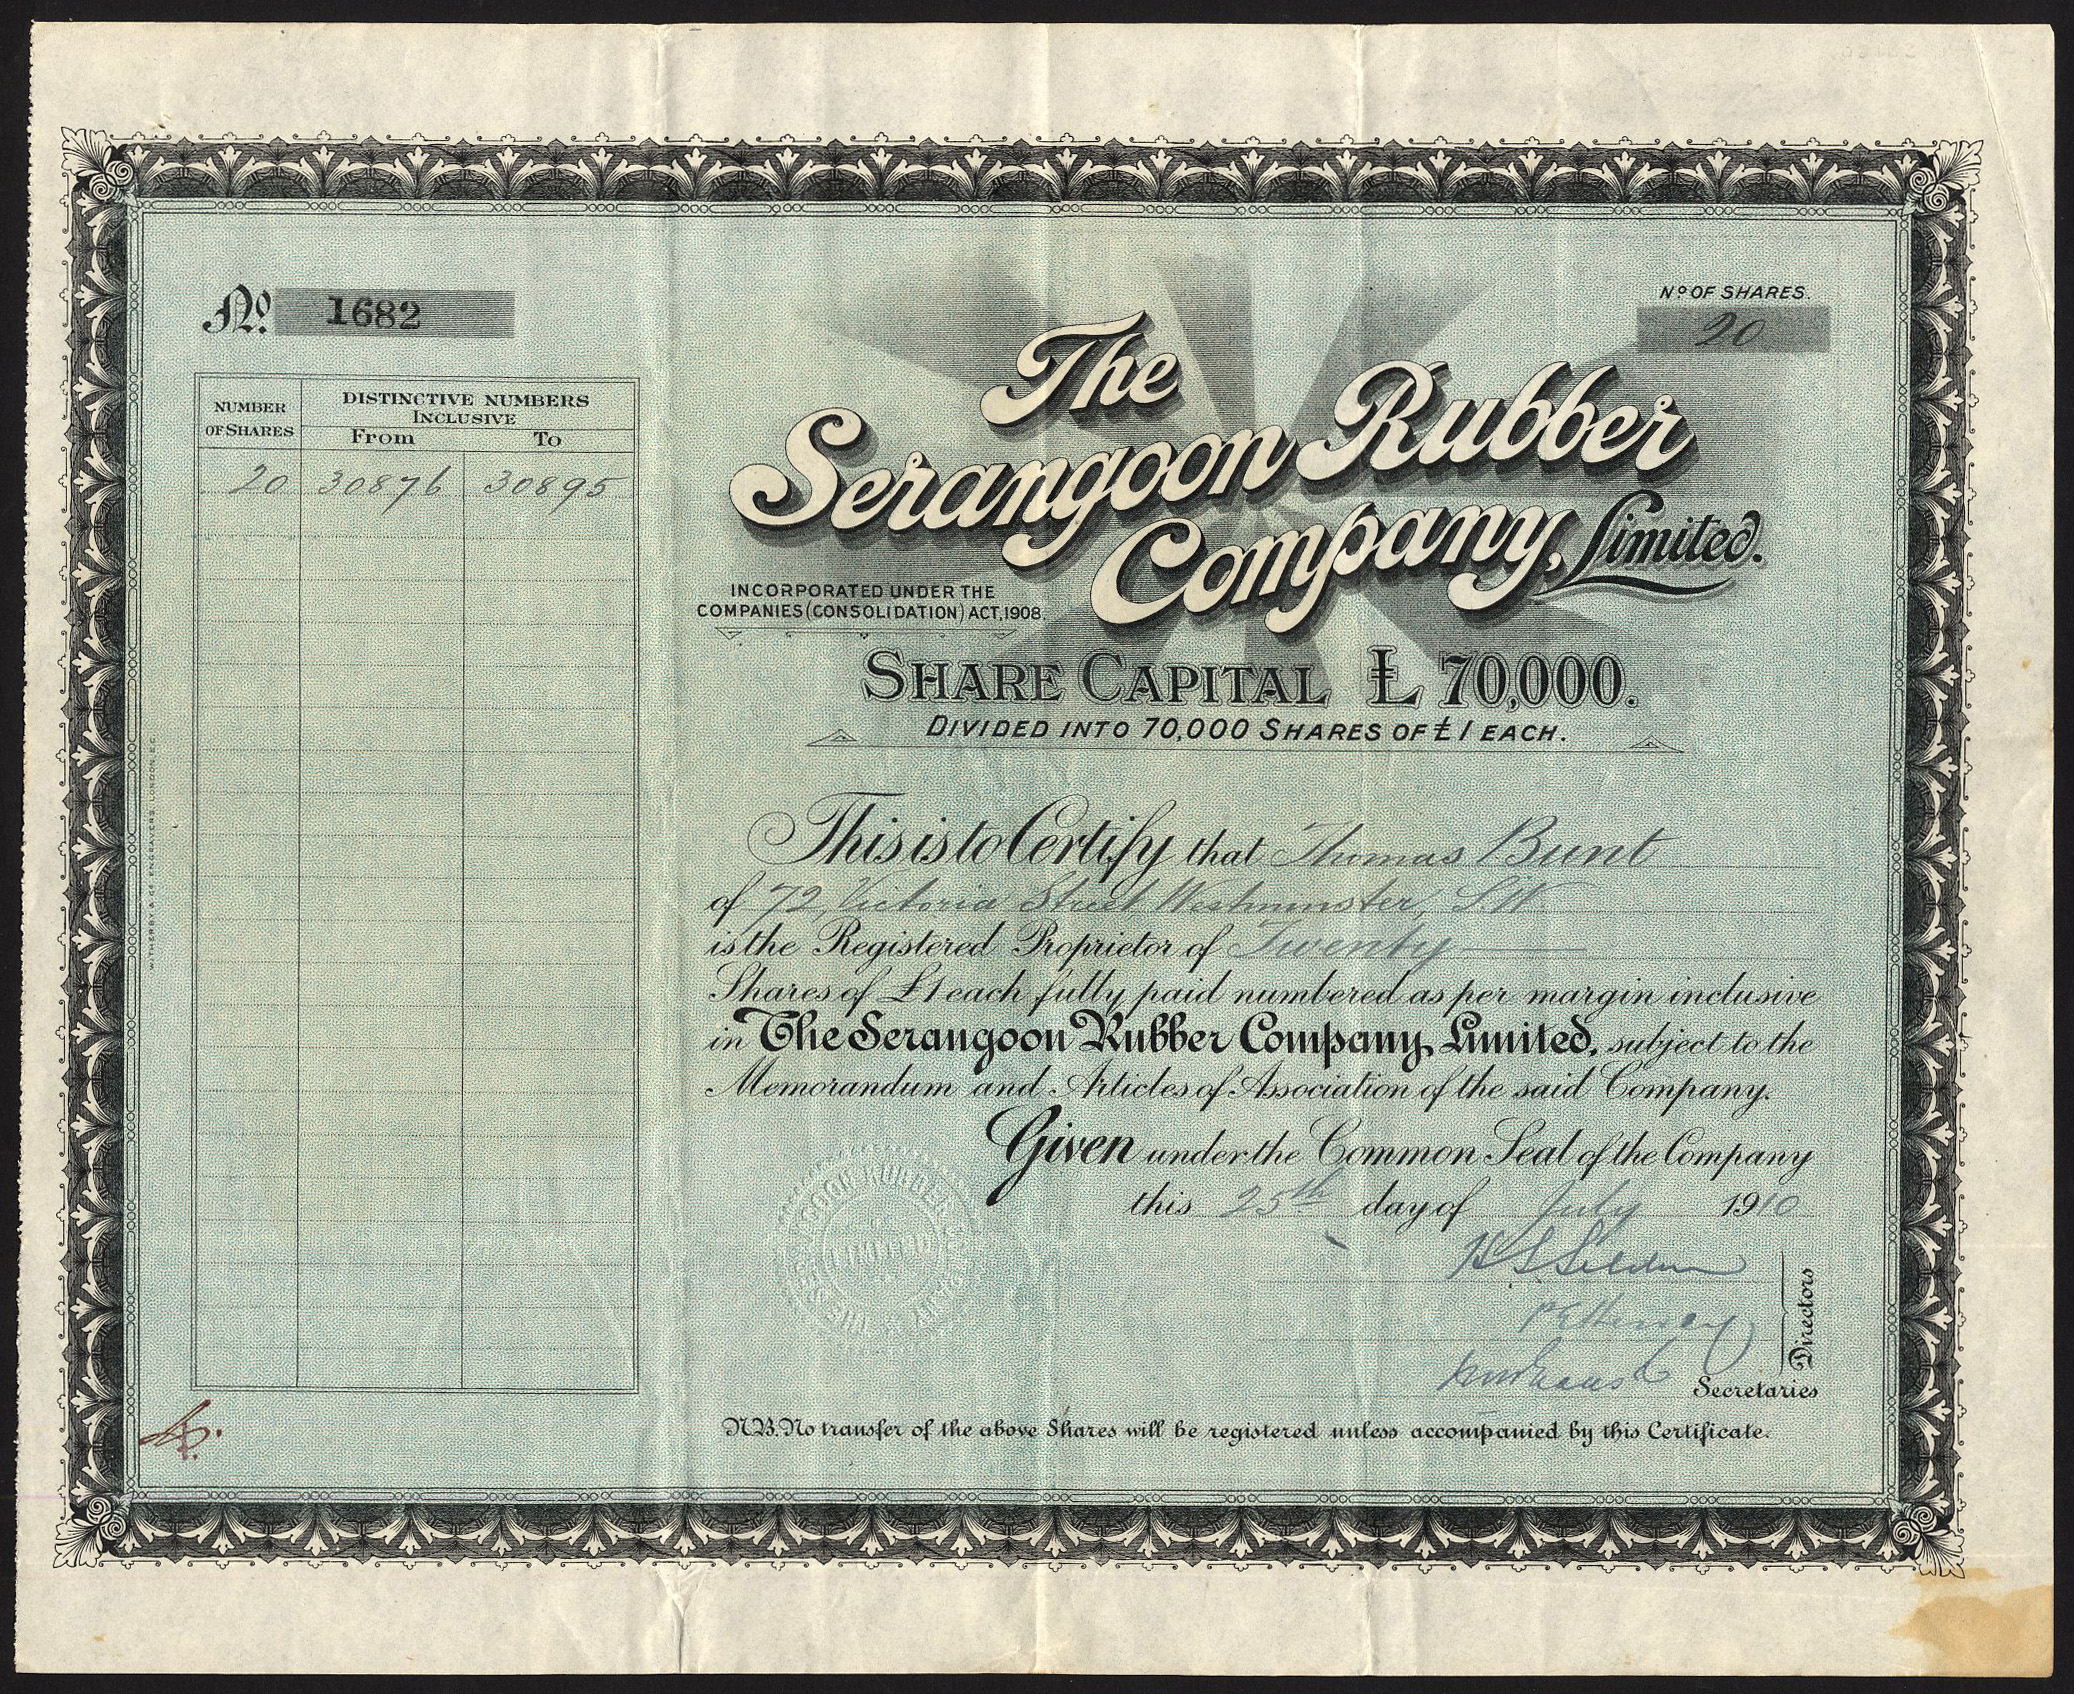 No. 1682
No OF SHARES.
20
NUMBER OF SHARES
DISTINCTIVE NUMBERS
INCLUSIVE
From To
20 30876 30895
The
Serangoon Rubber
Company, Limited.
INCORPORATED UNDER THE
COMPANIES (CONSOLIDATION) ACT, 1908.
SHARE CAPITAL £ 70,000.
DIVIDED INTO 70,000 SHARES OF £1 EACH.
This is to Certify that Thomas Bunt
of 72, Victoria Street Westminster, S.W.
is the Registered Proprietor of Twenty
Shares of £1 each fully paid numbered as per margin inclusive
in The Serangoon Rubber Company, Limited, subject to the
Memorandum and Articles of Association of the said Company.
Given under the Common Seal of the Company
this 25th day of July 1910
Directors
Secretaries
N.B. No transfer of the above Shares will be registered unless accompanied by this Certificate.
WITHERBY & CO ENGRAVERS, LONDON, E.C.
THE SERANGOON RUBBER COMPANY LIMITED